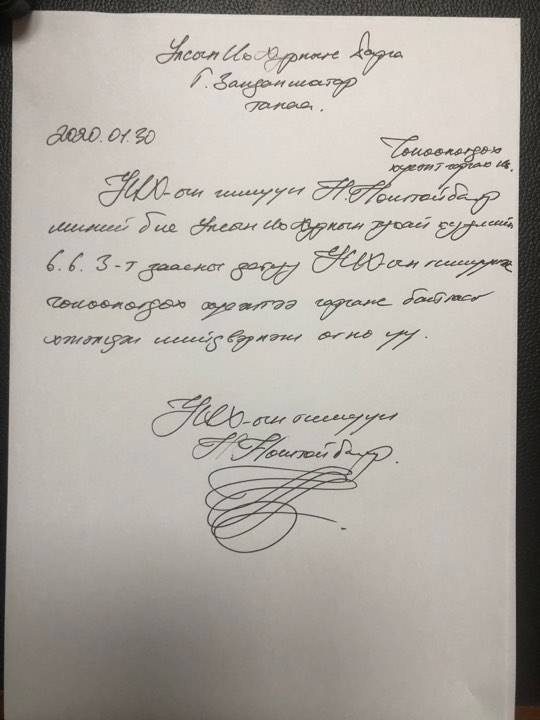 Улсын Их Хурлын дарга
Г. Занданшатар
танаа.
2020.01.30
Чөлөөлөгдөх
хүсэлт гаргах нь.
УИХ-ын гишүүн Н.Номтойбаяр
миний бие Улсын Их Хурлын тухай хуулийн
6.6.3-т заасны дагуу УИХ-ын гишүүнээс
чөлөөлөгдөх хүсэлтээ гаргаж байгааг
хэлэлцэн шийдвэрлэж өгнө үү.
УИХ-ын гишүүн
Н.Номтойбаяр.